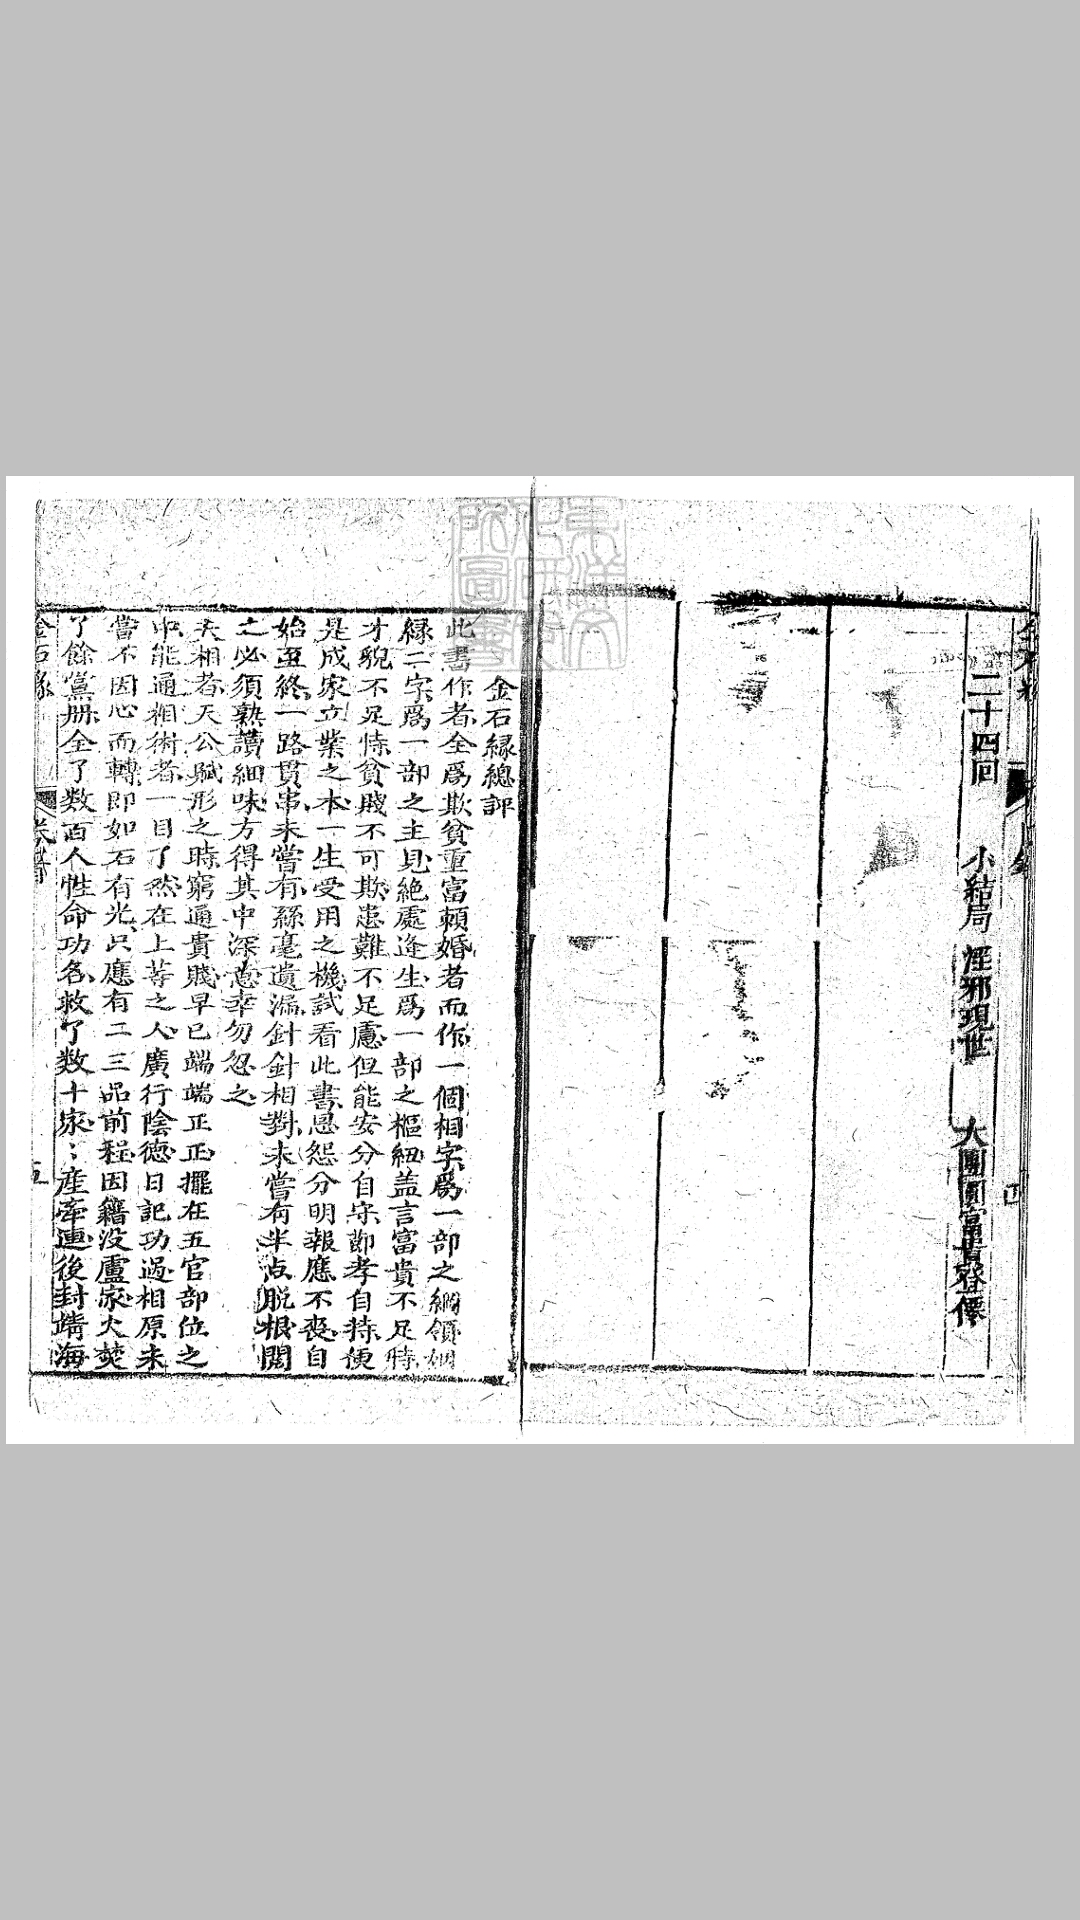 二十四回　小結局　婬邪現世　大團圓富貴登僊
四
金石緣總評
此書作者全爲欺貧重富賴婚者而作一個相字爲一部之綱領姻
緣二字爲一部之主見絶處逢生爲一部之樞紐盖言富貴不足恃
才貌不足恃貧賤不可欺患難不足慮但能安分自守節孝自持便
是成家立業之本一生受用之機試看此書恩怨分明報應不爽自
始至終一路貫串未嘗有絲毫遺漏針針相對未嘗有半点脱根閱
之必須熟讀細味方得其中深意幸勿忽之
夫相者天公賦形之時窮通貴賤早已端端正正擺在五官部位之
中能通相術者一目了然在上等之人廣行陰德日記功過相原未
嘗不因心而轉即如石有光只應有二三品前程因籍没盧家火焚
了餘黨册全了数百人性命功名救了数十家〻産牽連後封靖海
金石緣
卷首
五